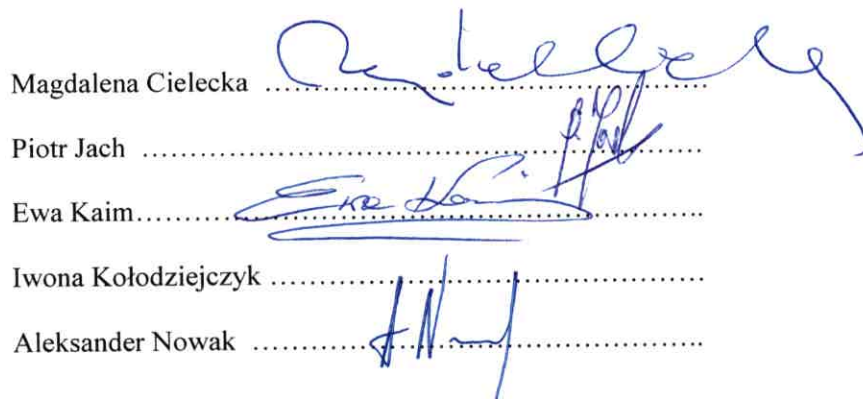 Magdalena Cielecka ........................................................
Piotr Jach ........................................................................
Ewa Kaim........................................................................
Ewa Kaim
Iwona Kołodziejczyk .......................................................
Aleksander Nowak .........................................................